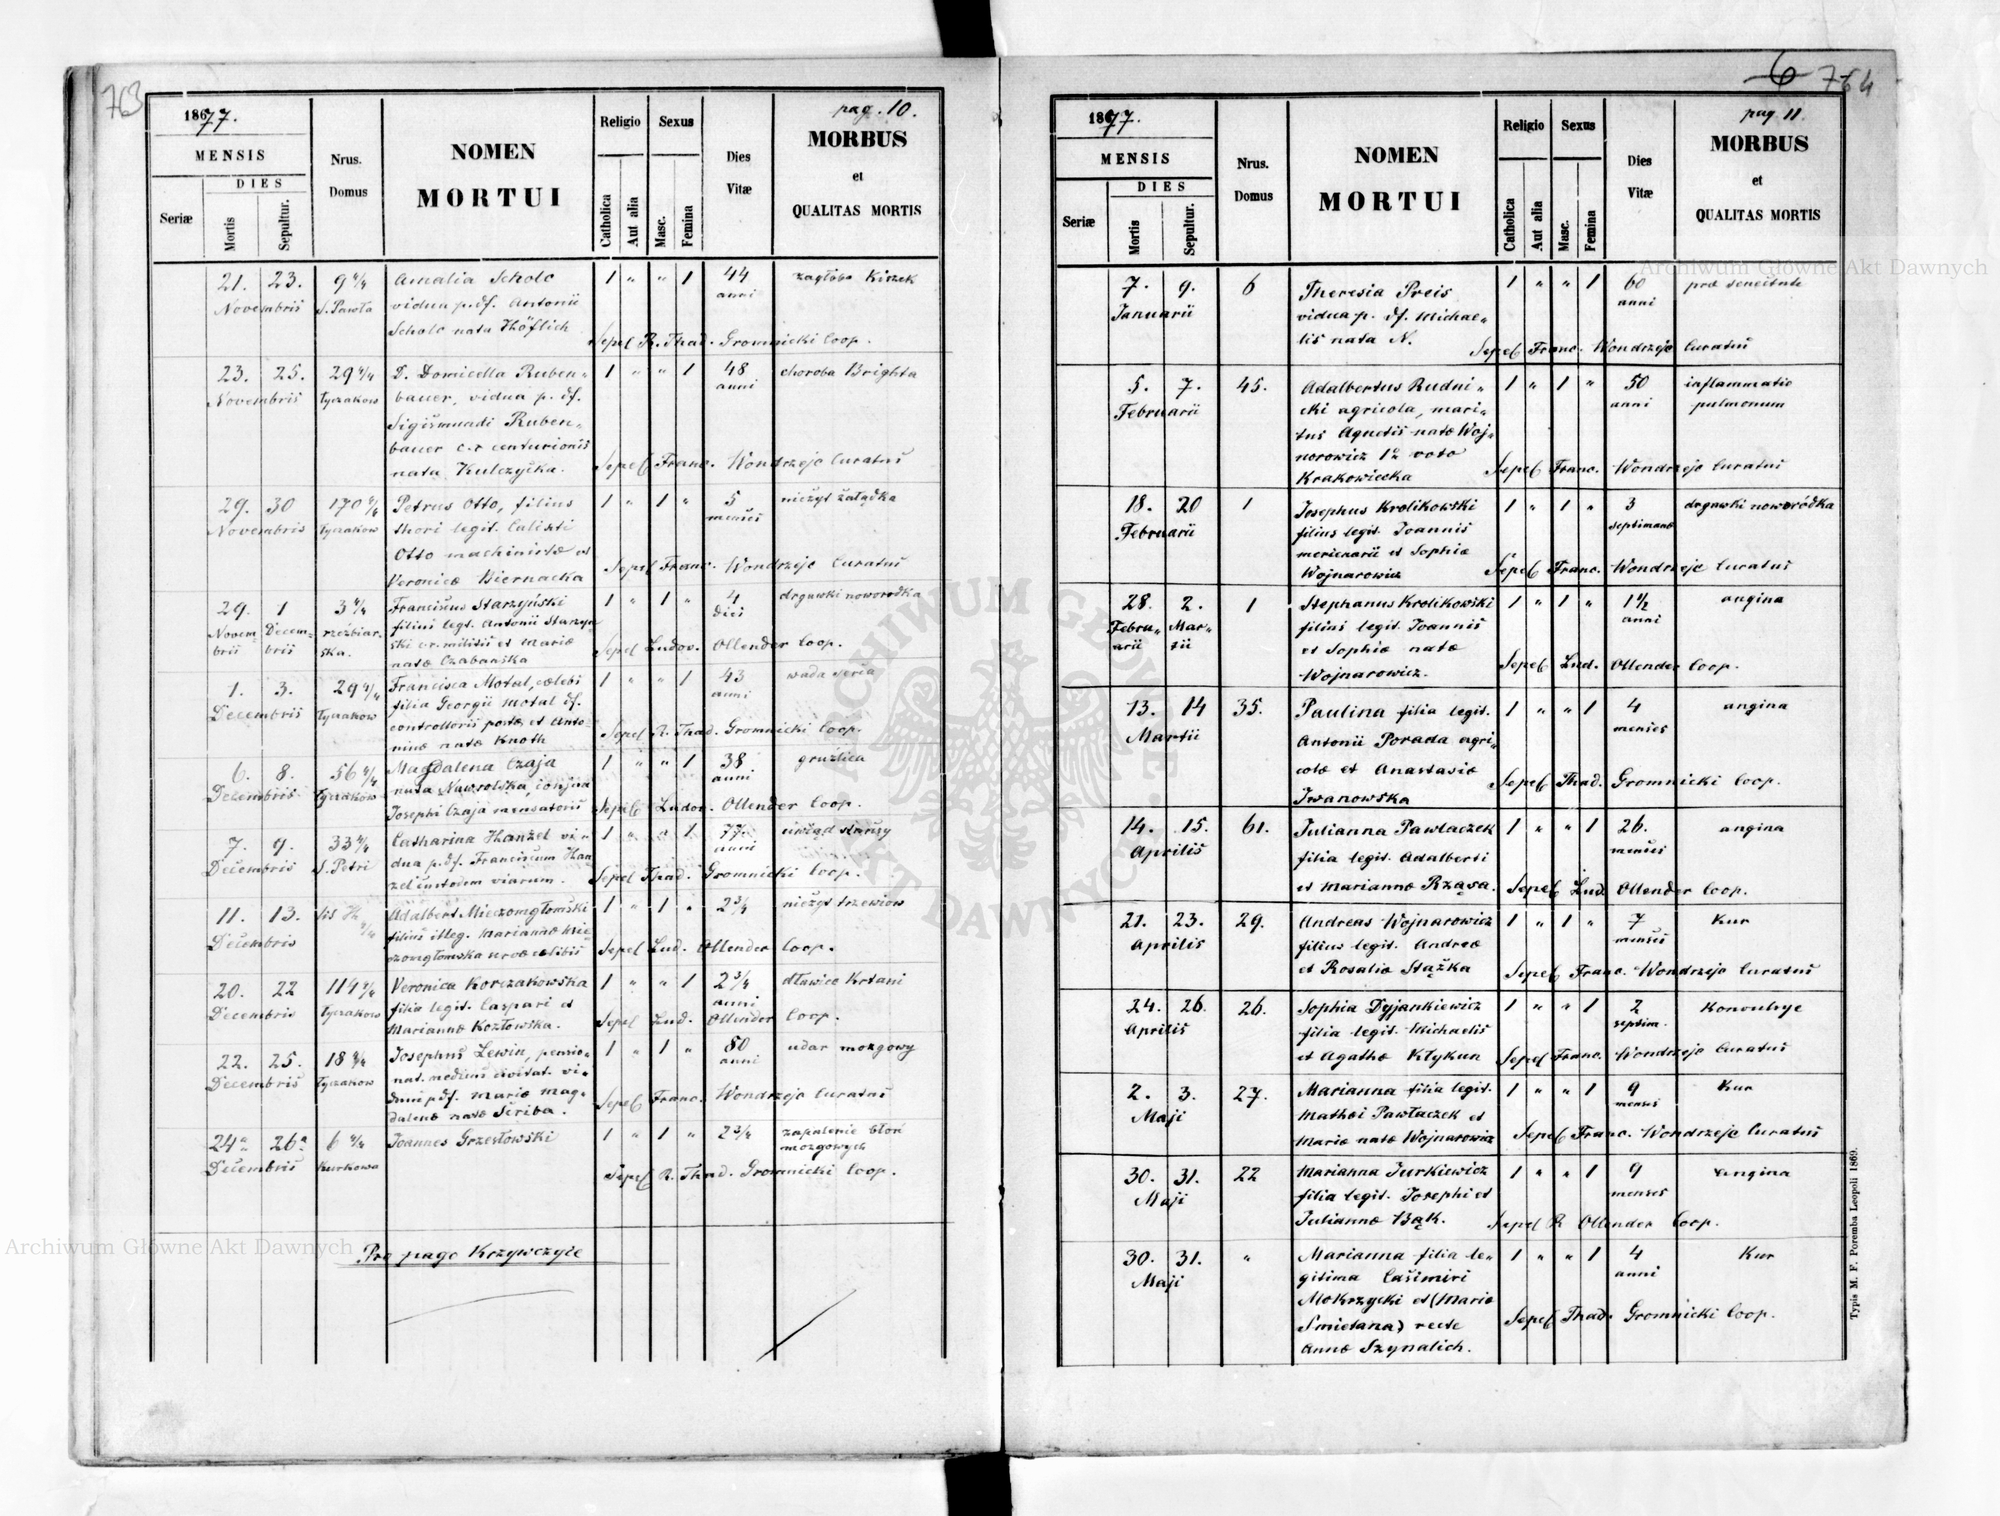 763
1877.
pag. 10.
MENSIS
DIES
Seriæ
Mortis
Sepultur.
Nrus.
Domus
NOMEN
MORTUI
Religio
Sexus
Catholica
Aut alia
Masc.
Femina
Dies
Vitæ
MORBUS
et
QUALITAS MORTIS
21. 23. 9 4/4 Amalia Scholc 1 " " 1 44
Novembris S. Pawła vidua p. df. Antonii anni
Scholc nata Höflich
Sepel R. Thad. Gromnicki Coop.
23. 25. 29 4/4 D. Domicella Ruben- 1 " " 1 48 choroba Brighta
Novembris Łyczakow bauer, vidua p. df. anni
Sigismundi Ruben-
bauer c.r centurionis
nata Kulczycka.
Sepel Franc. Wondrzejc Curatus
29. 30 170 4/4 Petrus Otto, filius 1 " 1 " 5 nieżyt żołądka
Novembris Łyczakow thori legit. Calixti menses
Otto machinistæ et
Veronicæ Biernacka
Sepel Franc. Wondrzejc Curatus
29. 1 3 4/4 Franciscus Starzyński 1 " 1 " 4 drgawki noworodka
Novem- Decem- rzeźbiar- filius legt. Antonii Starzyń- dies
bris bris ska. ski c.r. militis et Mariæ
natæ Czabańska
Sepel Ludov. Ollender Coop.
1. 3. 29 4/4 Francisca Motal, cœlebs 1 " " 1 43 wada serca
Decembris Łyczakow filia Georgii Motal df. anni
controlloris postæ, et Anto-
ninæ natæ Knoth
Sepel R. Thad. Gromnicki Coop.
6. 8. 56 4/4 Magdalena Czaja 1 " " 1 38 gruźlica
Decembris Łyczakow nata Nawrolska, conjux anni
Josephi Czaja mensatoris
Sepel Ludov. Ollender Coop.
7. 9. 33 4/4 Catharina Hanzel vi- 1 " " 1 77 uwiąd starczy
Decembris S. Petri dua p. df. Franciscum Han- anni
zel custodem viarum.
Sepel Thad. Gromnicki Coop.
11. 13. Adalbert. Mieczomgłomski 1 " 1 " 2 3/4 nieżyt trzewiów
Decembris filius illeg. Mariannæ Mie-
czomgłomska
Sepel Lud. Ollender Coop.
20. 22 114 4/4 Veronica Korczakowska 1 " " 1 2 3/4 dławiec Krtani
Decembris Łyczakow filia legit. Caspari et anni
Mariannæ Kozłowska.
Sepel Lud. Ollender Coop.
22. 25. 18 4/4 Josephus Lewin, pensio- 1 " 1 " 80 udar mozgowy
Decembris Łyczakow nat. medicus civitat. vi- anni
duus p. df. Mariæ Mag-
dalenæ natæ Scriba.
Sepel Franc. Wondrzejc Curatus
24a 26a 6 4/4 Joannes Grzesłowski 1 " 1 " 2 3/4 zapalenie błon
Decembris Kurkowa mozgowych
Sepel R. Thad. Gromnicki Coop.
Pro pago Krzywczyce
6
764
1877.
pag. 11.
MENSIS
DIES
Seriæ
Mortis
Sepultur.
Nrus.
Domus
NOMEN
MORTUI
Religio
Sexus
Catholica
Aut alia
Masc.
Femina
Dies
Vitæ
MORBUS
et
QUALITAS MORTIS
7. 9. 6 Theresia Preis 1 " " 1 60 præ senectute
Januarii vidua p. df. Michae- anni
lis nata N.
Sepel Franc. Wondrzejc Curatus
5. 7. 45. Adalbertus Rudni- 1 " 1 " 50 inflammatio
Februarii cki agricola, mari- anni pulmonum
tus Agnetis natæ Woj-
norowicz 1o voto
Krakowiecka
Sepel Franc. Wondrzejc Curatus
18. 20 1 Josephus Krolikowski 1 " 1 " 3 drgawki noworódka
Februarii filius legit. Joannis septimanæ
mercenarii et Sophiæ
Wojnarowicz
Sepel Franc. Wondrzejc Curatus
28. 2. 1 Stephanus Krolikowski 1 " 1 " 1 1/2 angina
Febru- Mar- filius legit. Joannis anni
arii tii et Sophiæ natæ
Wojnarowicz.
Sepel Lud. Ollender Coop.
13. 14 35. Paulina filia legit. 1 " " 1 4 angina
Martii Antonii Porada agri- menses
colæ et Anastasiæ
Iwanowska
Sepel Thad. Gromnicki Coop.
14. 15. 61. Julianna Pawlaczek 1 " " 1 26. angina
Aprilis filia legit. Adalberti menses
et Mariannæ Rząsa.
Sepel Lud. Ollender Coop.
21. 23. 29. Andreas Wojnarowicz 1 " 1 " 7 Kur
Aprilis filius legit. Andreæ menses
et Rosaliæ Stążka
Sepel Franc. Wondrzejc Curatus
24. 26. 26. Sophia Dyjankiewicz 1 " " 1 2 Konwulsye
Aprilis filia legit. Michaelis septim.
et Agathæ Kłykun
Sepel Franc. Wondrzejc Curatus
2. 3. 27. Marianna filia legit. 1 " " 1 9 Kur
Maji Mathæi Pawłaczek et menses
Mariæ natæ Wojnarowicz
Sepel Franc. Wondrzejc Curatus
30. 31. 22 Marianna Jurkiewicz 1 " " 1 9 Angina
Maji filia legit. Josephi et menses
Juliannæ Bąk.
Sepel R Ollender Coop.
30. 31. " Marianna filia le- 1 " " 1 4 Kur
Maji gitima Casimiri anni
Mokrzycki et (Mariæ
Smietana) recte
Annæ Szynalich.
Sepel Thad. Gromnicki Coop.
Typis M. F. Poremba Leopoli 1869.
Archiwum Główne Akt Dawnych
Archiwum Główne Akt Dawnych
ARCHIWUM GŁÓWNE AKT DAWNYCH